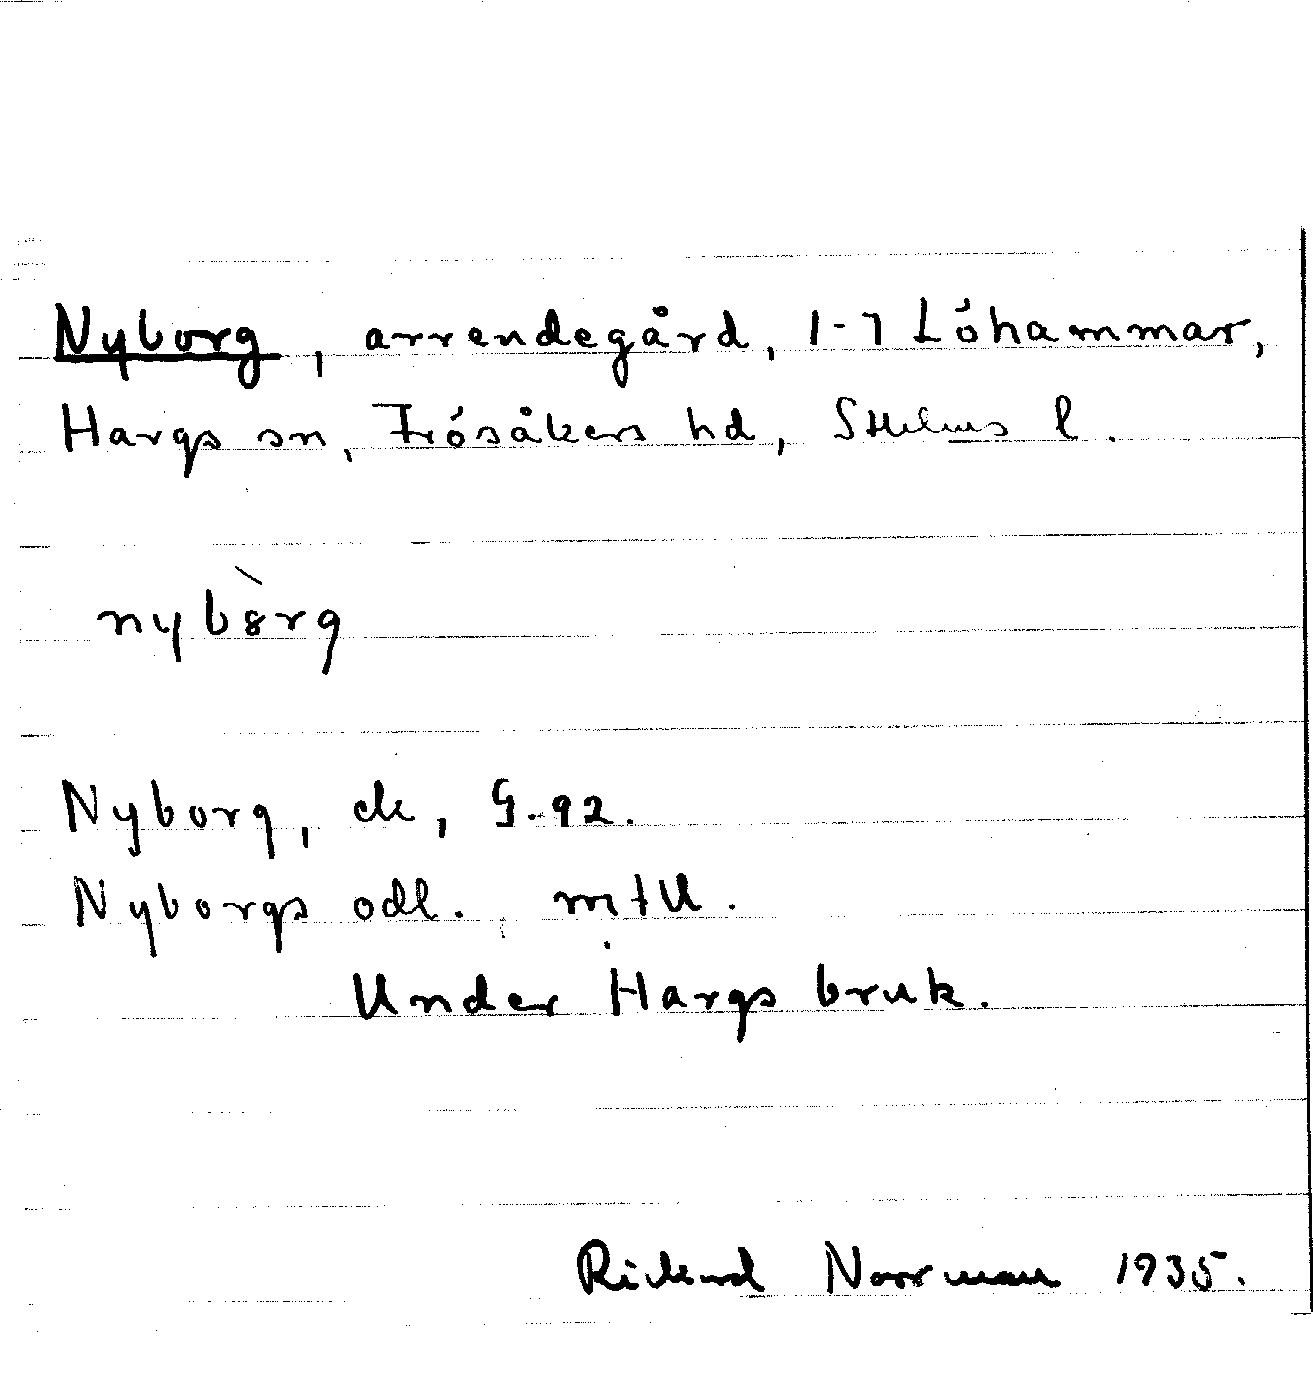 Nyborg, arrendegård, 1-7 Löhammar,
Hargs sn, Frösåkers hd, Sthlms l.
nybàrg
Nyborg, ek, G.92.
Nyborgs odl. mtU.
Under Hargs bruk.
Rickard Norrman 1935.